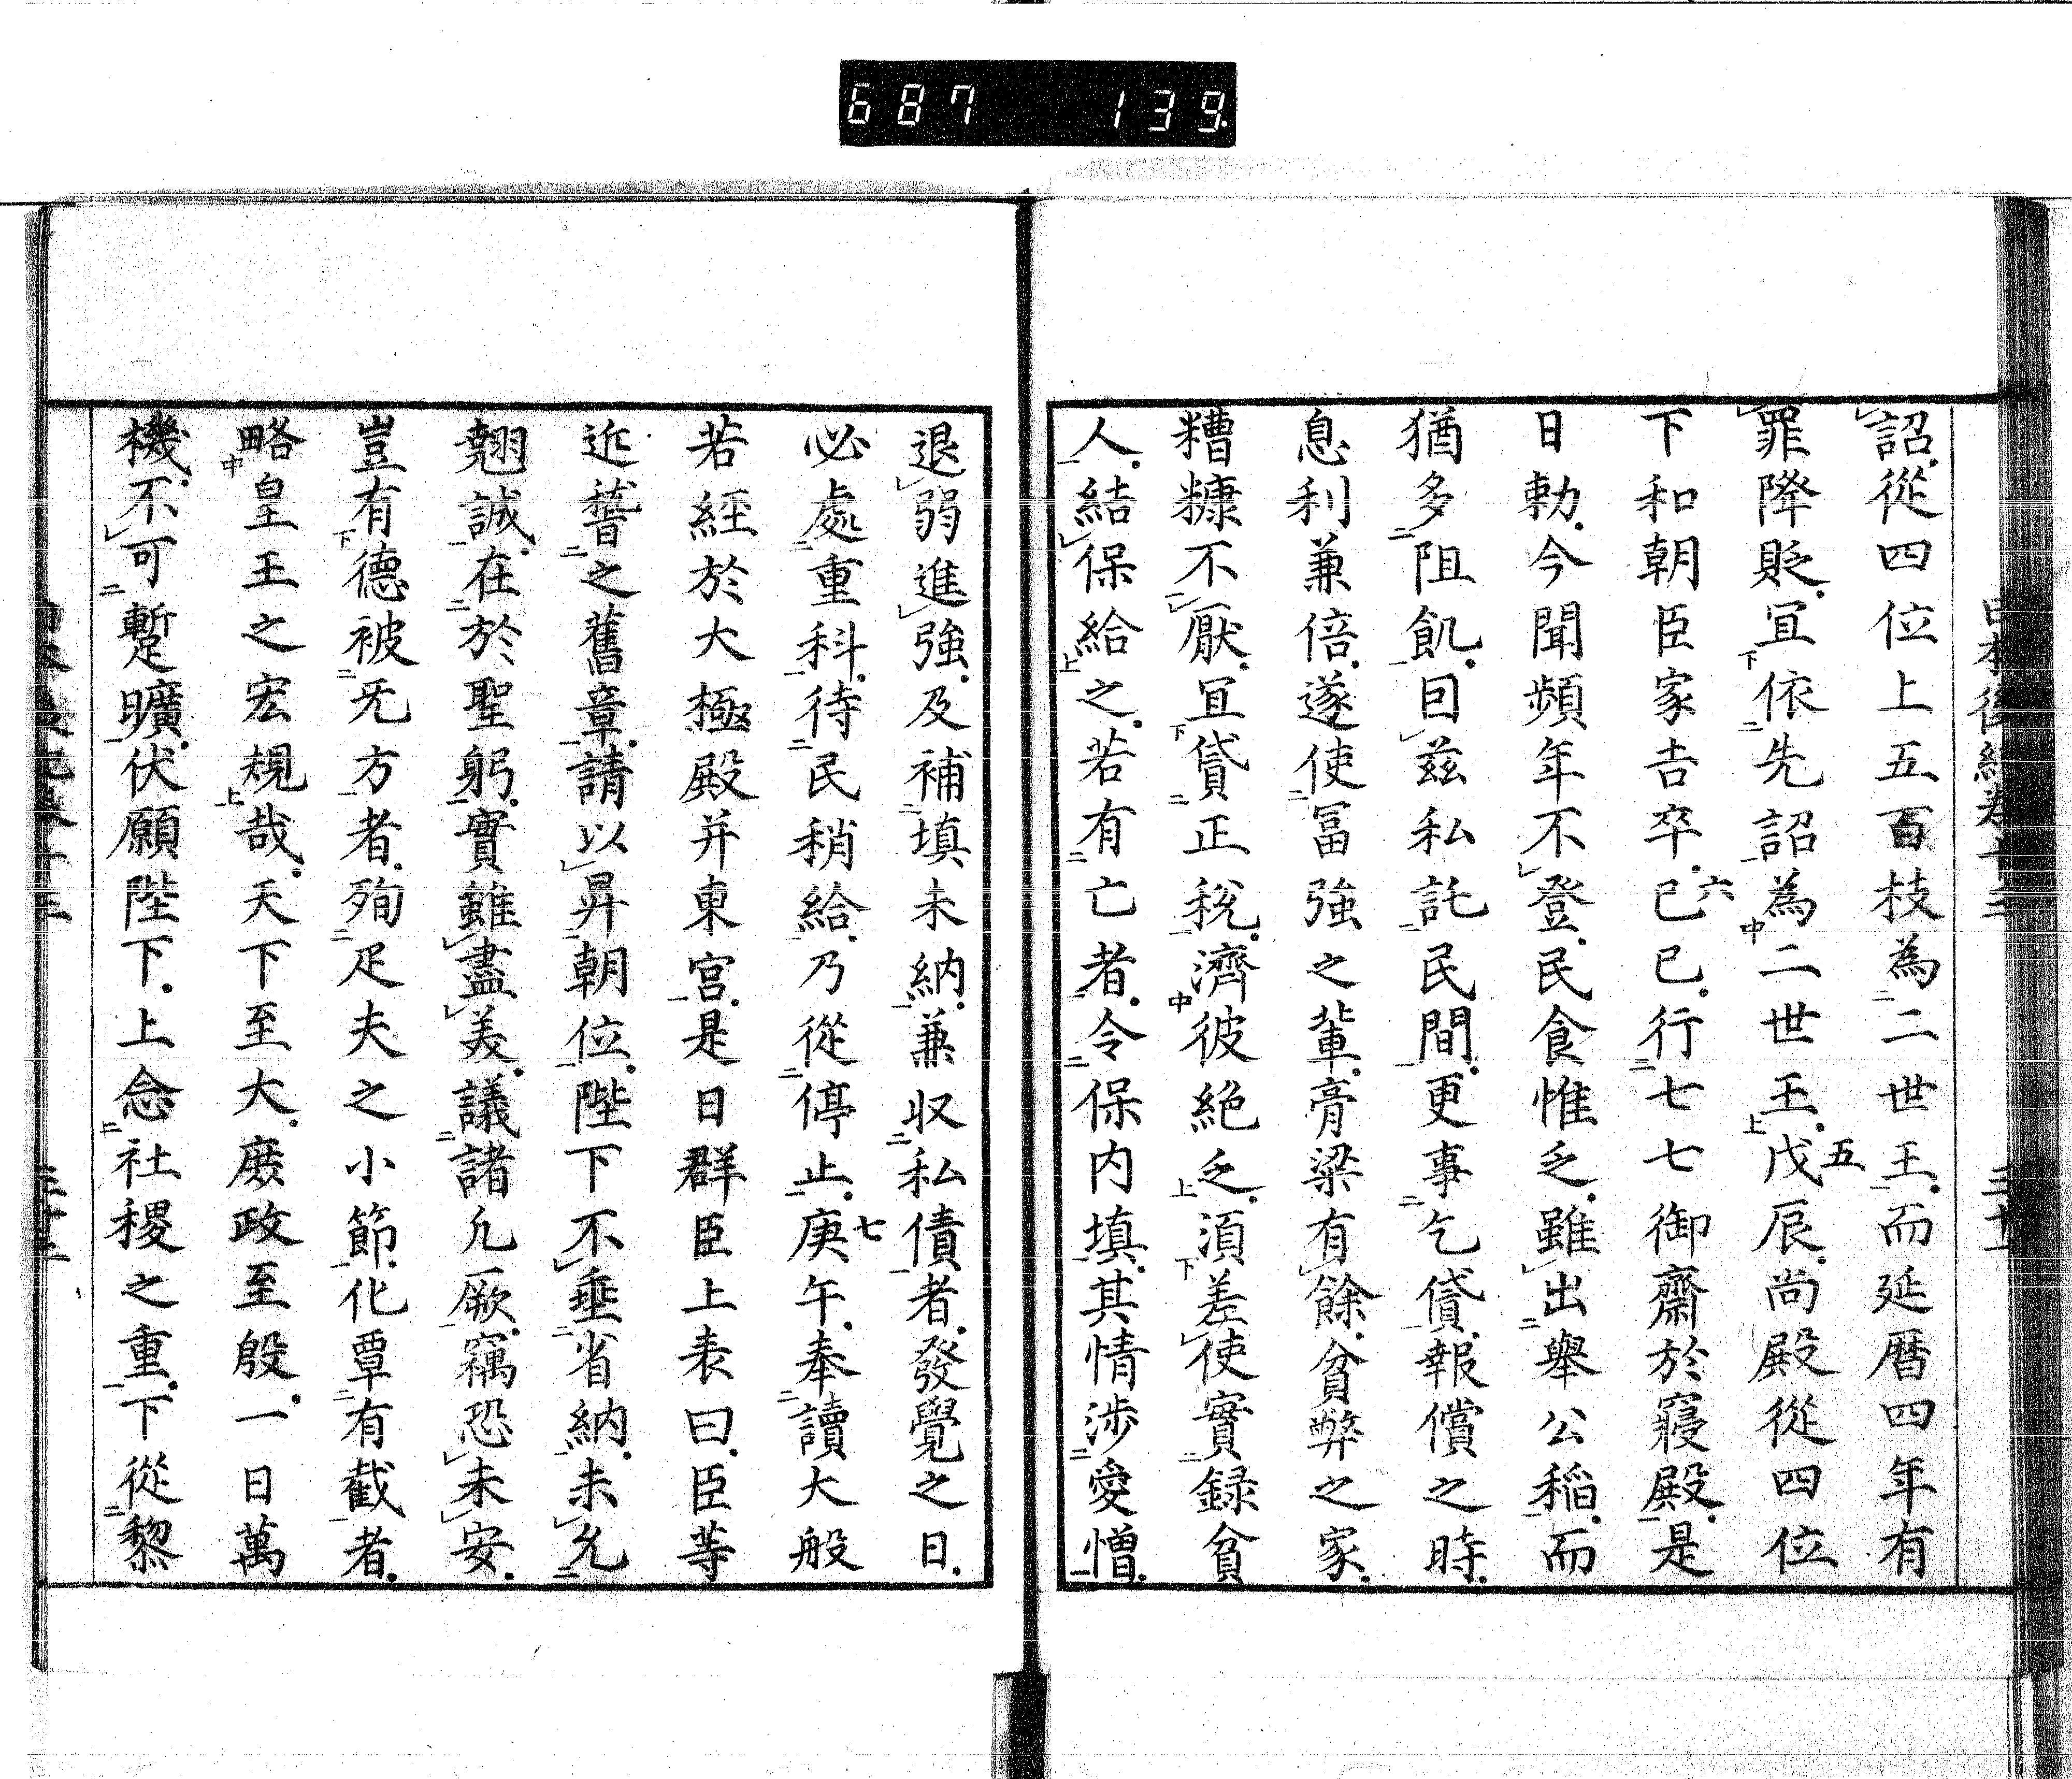 687 139
詔從四位上五百枝為二世王而延暦四年有
罪降貶宜依先詔為二世王戊辰尚殿從四位
下和朝臣家吉卒己巳行七七御齋於寢殿是
日勅今聞頻年不登民食惟乏雖出舉公稲而
猶多阻飢曰茲私託民間更事乞貸報償之時
息利兼倍遂使冨強之輩膏粱有餘貧弊之家
糟糠不厭宜貸正税濟彼絶乏須差使實録貧
人結保給之若有亡者令保内填其情渉愛憎
退弱進強及補填未納兼収私債者發覺之日
必處重科待民稍給乃從停止庚午奉讀大般
若經於大極殿并東宮是日群臣上表曰臣等
近𥡴之舊章請以昇朝位陛下不垂省納未允
翹誠在於聖躬實雖盡美議諸允厥竊恐未安
豈有德被无方者殉疋夫之小節化覃有截者
略皇王之宏規哉天下至大庶政至殷一日萬
機不可暫曠伏願陛下上念社稷之重下從黎
五
六
七